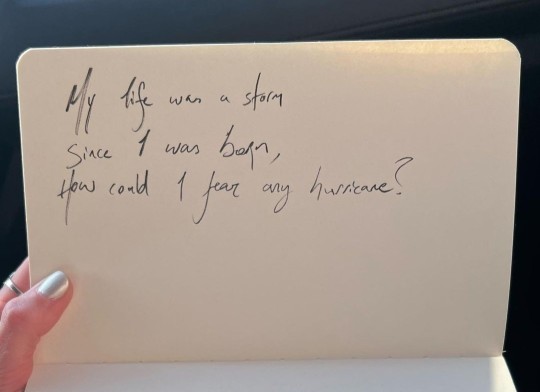 My life was a storm
Since I was born,
How could I fear any hurricane?